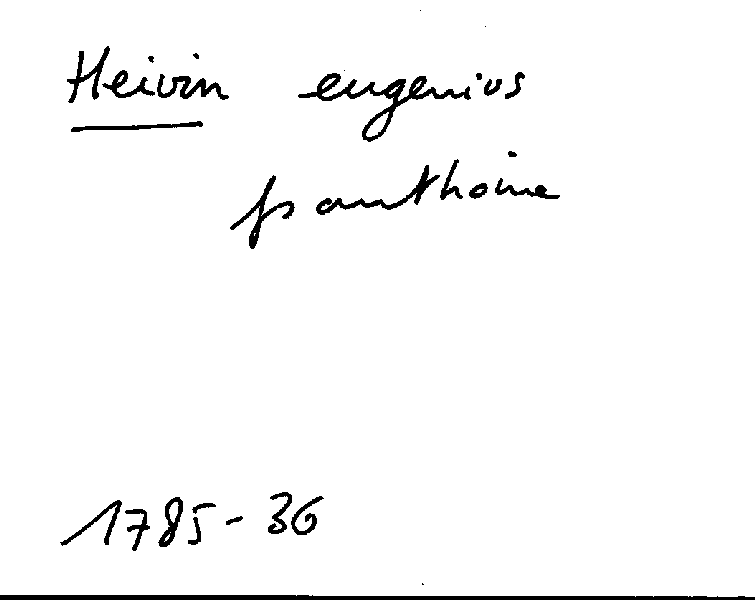 Heivin eugenius
panthoine
1785-36